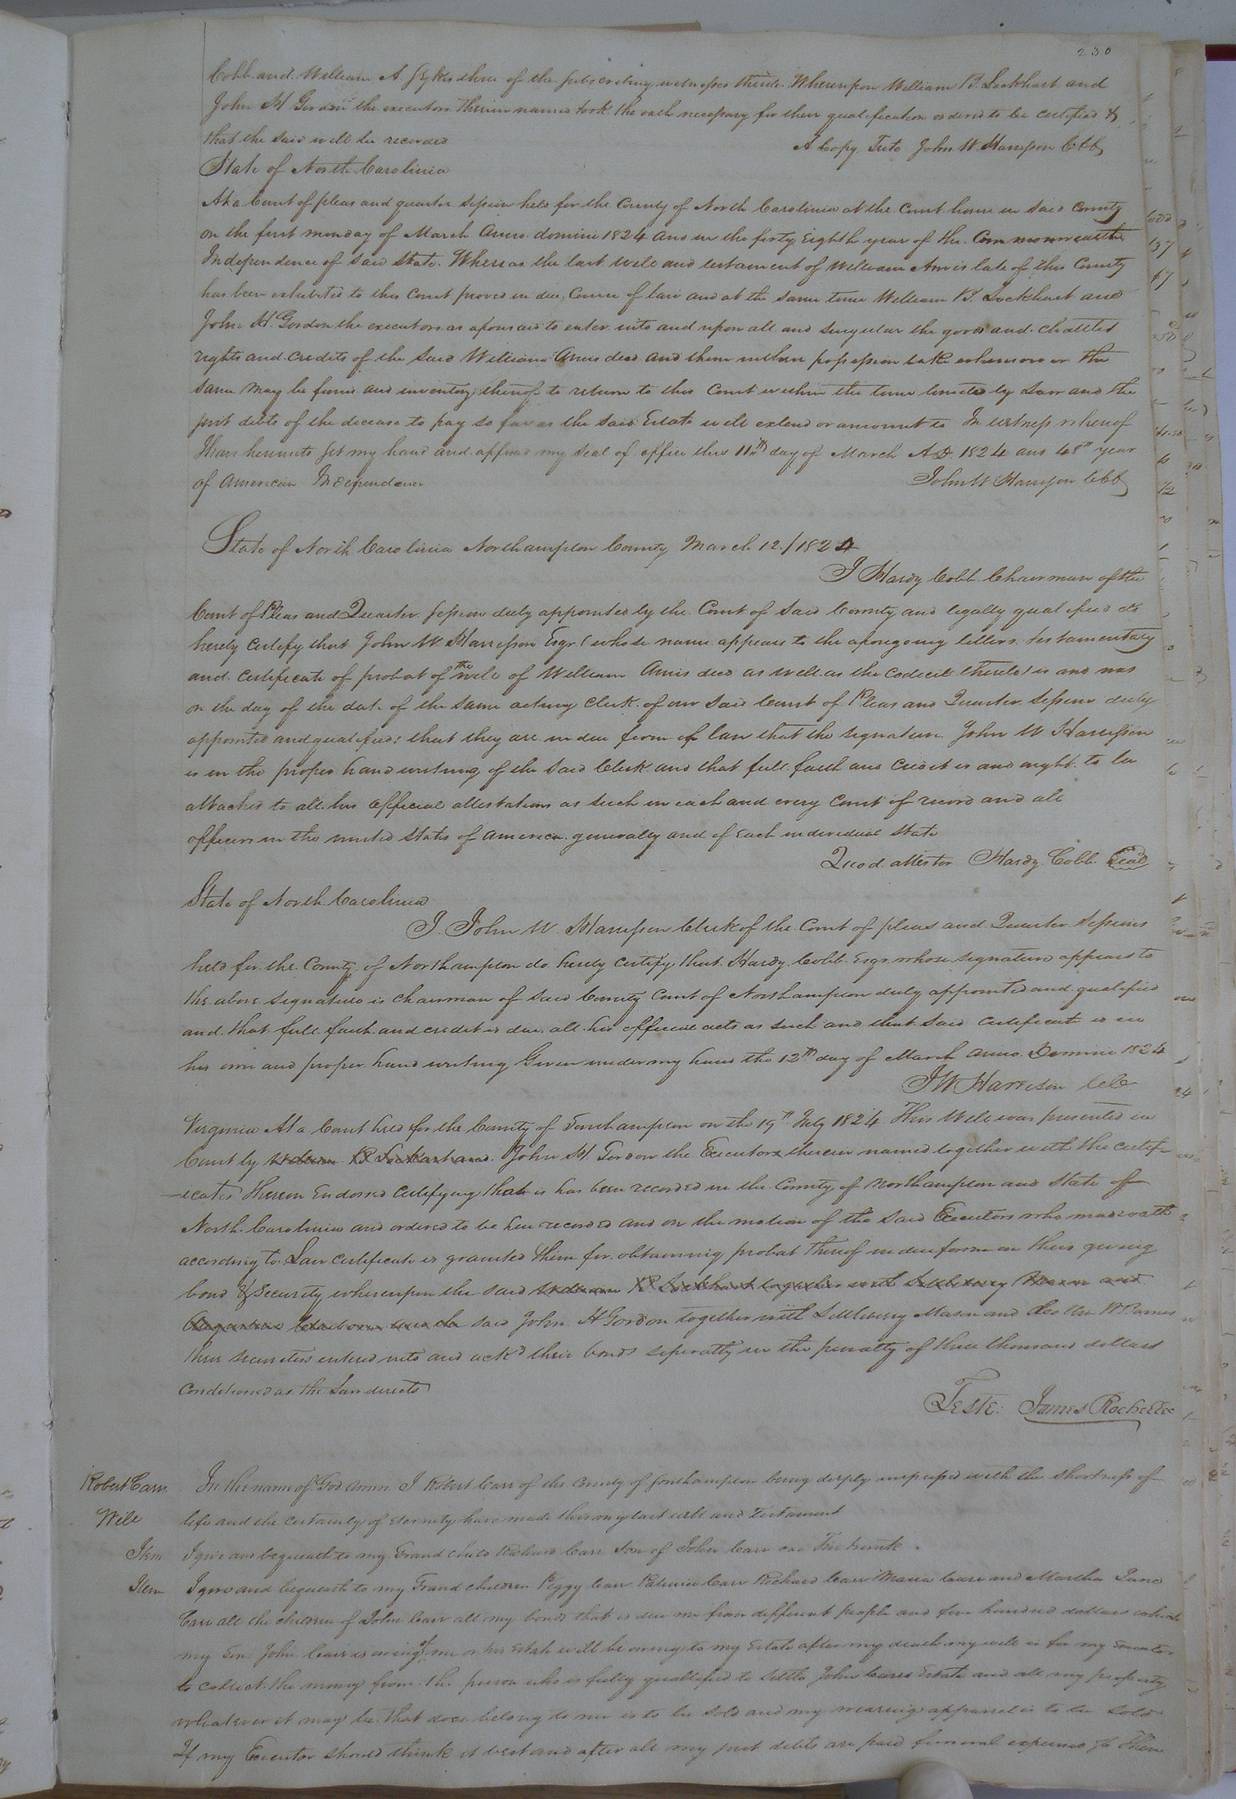 230
Cobb and William A Sykes three of the subscribing witnesses thereto Whereupon William B. Lockhart and
John H Gordon the executors therein named took the oath necessary for their qualification ordered to be certified &
that the said will be recorded A Copy Teste John W. Harrison Clk
State of North Carolina
At a Court of pleas and quarter session held for the County of North Carolina at the Court house in said County
on the first monday of March anno domini 1824 and in the forty Eighth year of the Commonwealth
Independence of said State. Whereas the last will and testament of William Amis late of this County
has been exhibited to this Court proved in due Course of law and at the same time William B. Lockhart and
John H. Gordon the executors as aforesaid to enter into and upon all and singular the goods and chattles
rights and credits of the said William Amis decd and them into possession take wheresoever the
same may be found and inventory thereof to return to this Court within the time limited by Law and the
just debts of the decease to pay so far as the said Estate will extend or amount to In witness whereof
I have hereunto set my hand and affixed my seal of office this 11th day of March AD 1824 and 48th year
of American Independence John W Harrison Clk
State of North Carolina Northampton County March 12./1824
I Hardy Cobb Chairman of the
Court of Pleas and Quarter session duly appointed by the Court of said County and legally qualified do
hereby certify that John W Harrison Esqr (whose name appears to the aforegoing letters testamentary
and certificate of probat of the will of William Amis decd as well as the codicil thereto) is and was
on the day of the date of the same acting Clerk of our said Court of Pleas and Quarter session duly
appointed and qualified: that they are in due form of law that the signature John W Harrison
is in the proper hand writing of the said Clerk and that full faith and credit is and ought to be
attached to all his official attestations as such in each and every Court of record and all
officers in the united States of America generally and of each individual State
Quod attestor Hardy Cobb Seal
State of North Carolina
I. John W. Harrison Clerk of the Court of pleas and Quarter Sessions
held for the County of Northampton do hereby certify that Hardy Cobb Esqr whose signature appears to
the above signature is chairman of said County Court of Northampton duly appointed and qualified
and that full faith and credit is due all his official acts as such and that said certificate is in
his own and proper hand writing Given under my hand the 12th day of March anno Domini 1824
J W Harrison Clk
Virginia At a Court held for the County of Southampton on the 19th July 1824 This Will was presented in
Court by William B Lockhart and John H. Gordon the Executors therein named together with the certif-
-icates Thereon Endorsed certifying that is has been recorded in the County of Northampton and State of
North Carolina and ordered to be here recorded and on the motion of the said Executors who made oath
according to Law certificate is granted them for obtaining probat thereof in due form on their giving
bond & Security whereupon the said William B Lockhart together with Littleberry Mason and
said John H Gordon together with Littleberry Mason and
their securities entered into and ackd their bonds seperatly in the penalty of three thousand dollars
conditioned as the Law directs
Teste: James Rochelle
Robert Carr In the name of God Amen. I Robert Carr of the County of Southampton being deeply impressed with the shortness of
Will life and the certainty of Eternity have made this my last will and Testament
Item I give and bequeath to my Grand child Richard Carr Son of John Carr one Trunk.
Item I give and bequeath to my Grand children Peggy Carr Richard Carr Maria Carr and Martha Jane
Carr all the children of John Carr all my bonds that is due me from different people and five hundred dollars which
my Son John Carr is owing me or his Estate will be owing to my Estate after my death my will is for my Executor
to collect the money from the person who is fully quallified to settle John Carrs Estate and all my property
whatever it may be that does belong to me is to be sold and my wearing apparrel is to be sold
If my Executor should think it best and after all my just debts are paid funeral expences &c Then